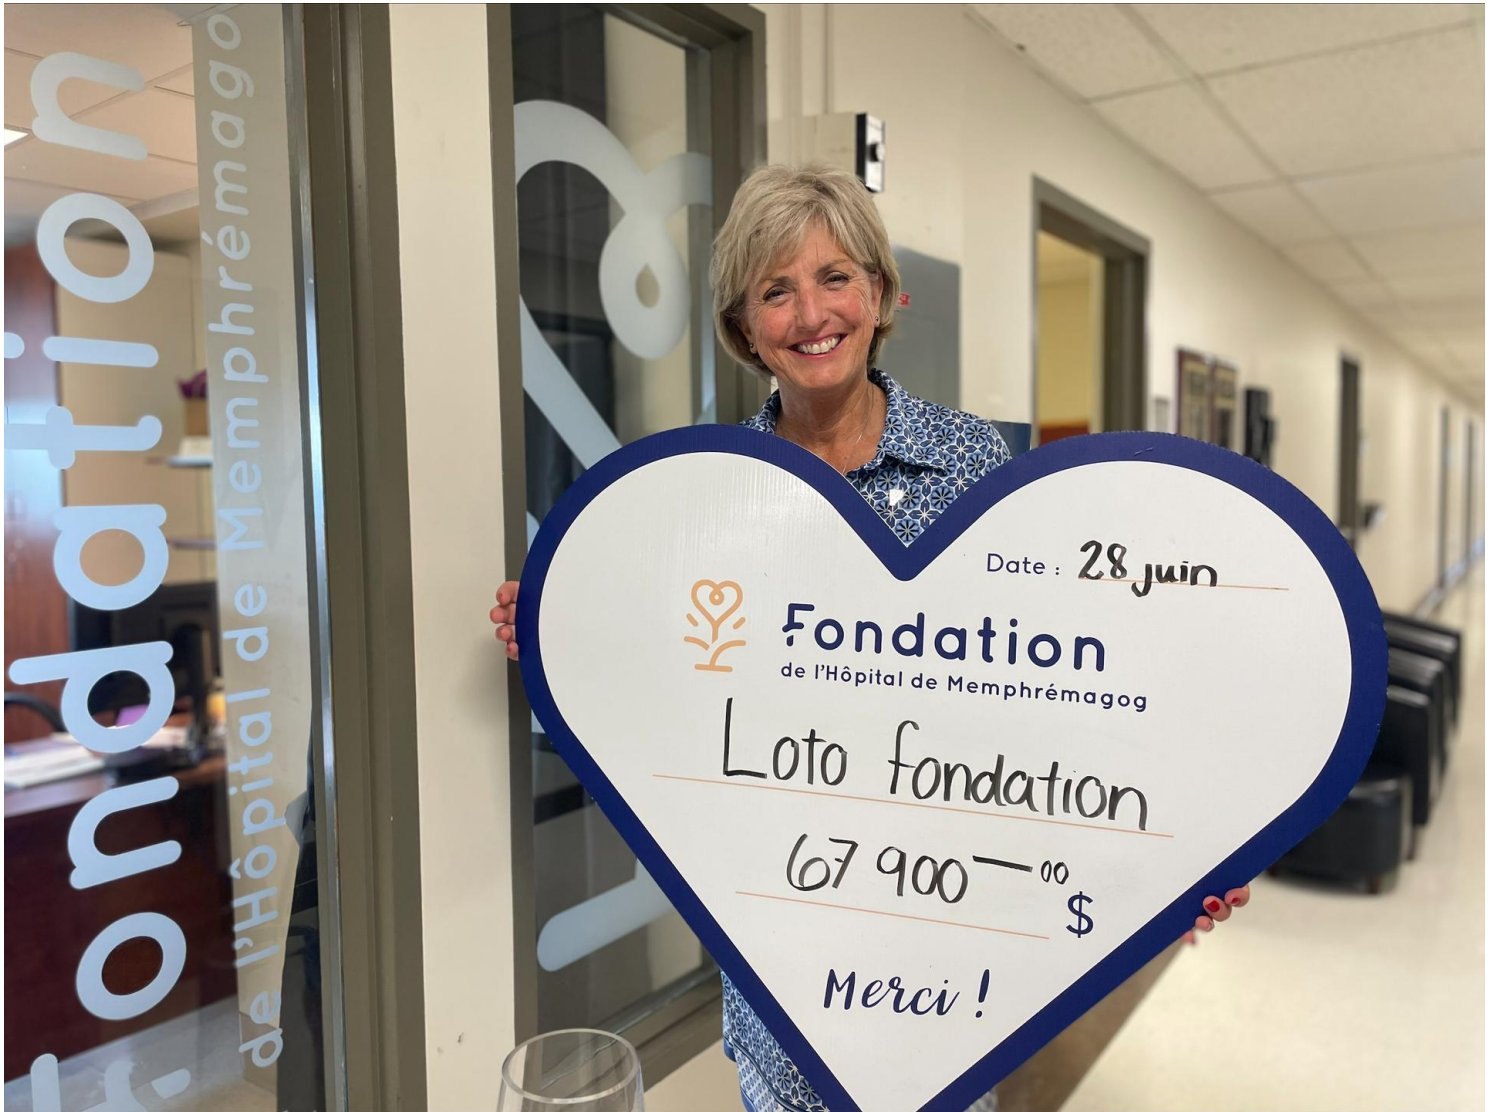 Fondation
de l'Hôpital de Memphrémagog
Date : 28 juin
Fondation
de l'Hôpital de Memphrémagog
Loto fondation
67 900 — 00 $
Merci !